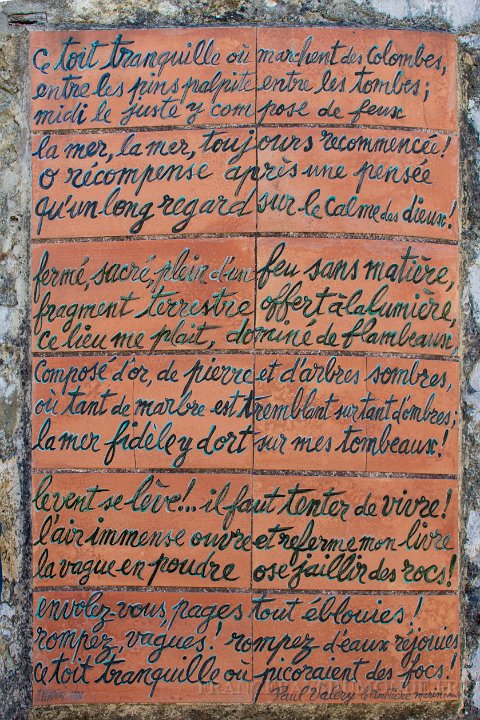 ce toit tranquille où marchent des colombes,
entre les pins palpite entre les tombes;
midi le juste y compose de feux
la mer, la mer, toujours recommencée!
o récompense après une pensée
qu'un long regard sur le calme des dieux!
fermé, sacré, plein d'un feu sans matière,
fragment terrestre offert à la lumière,
ce lieu me plait, dominé de flambeaux
composé d'or, de pierre et d'arbres sombres,
où tant de marbre est tremblant sur tant d'ombres;
la mer fidèle y dort sur mes tombeaux!
le vent se lève!... il faut tenter de vivre!
l'air immense ouvre et referme mon livre
la vague en poudre ose jaillir des rocs!
envolez-vous, pages tout éblouies!
rompez, vagues! rompez d'eaux réjouies
ce toit tranquille où picoraient des focs!
Paul Valéry le cimetière marin